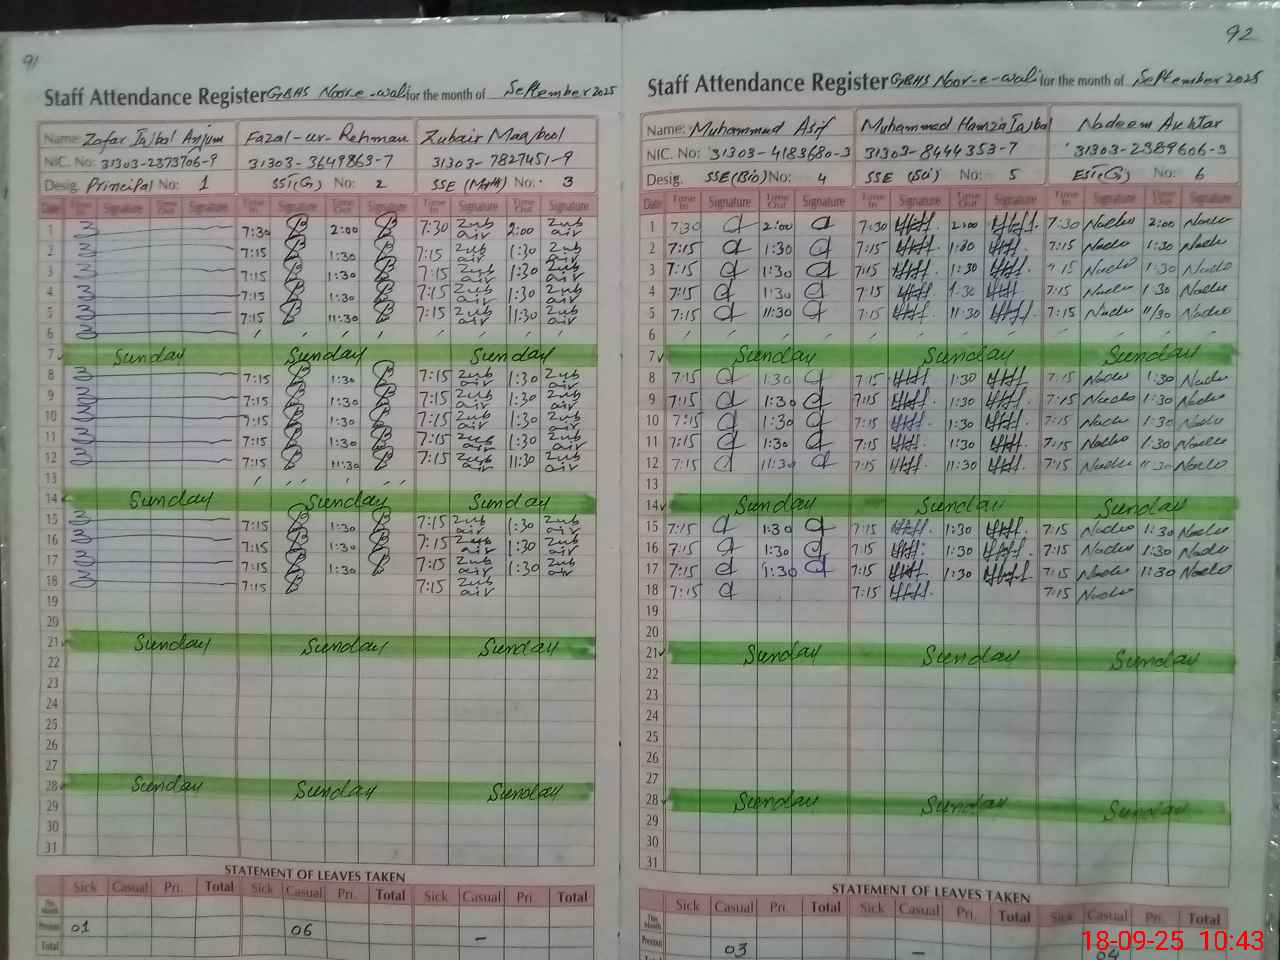 91
Staff Attendance Register GBHS Noor-e-wali for the month of September 2025
Name: Zafar Iqbal Anjum Fazal-ur-Rehman Zubair Maqbool
NIC. No: 31303-2373706-9 31303-3649863-7 31303-7827451-9
Desig. Principal No: 1 SST(G) No: 2 SSE (Math) No: 3
Date Time In Signature Time Out Signature Time In Signature Time Out Signature Time In Signature Time Out Signature
1 7:30 2:00 7:30 Zubair 2:00 Zubair
2 7:15 1:30 7:15 Zubair 1:30 Zubair
3 7:15 1:30 7:15 Zubair 1:30 Zubair
4 7:15 1:30 7:15 Zubair 1:30 Zubair
5 7:15 11:30 7:15 Zubair 11:30 Zubair
6
7 Sunday Sunday Sunday
8 7:15 1:30 7:15 Zubair 1:30 Zubair
9 7:15 1:30 7:15 Zubair 1:30 Zubair
10 7:15 1:30 7:15 Zubair 1:30 Zubair
11 7:15 1:30 7:15 Zubair 1:30 Zubair
12 7:15 11:30 7:15 Zubair 11:30 Zubair
13
14 Sunday Sunday Sunday
15 7:15 1:30 7:15 Zubair 1:30 Zubair
16 7:15 1:30 7:15 Zubair 1:30 Zubair
17 7:15 1:30 7:15 Zubair 1:30 Zubair
18 7:15 7:15 Zubair
19
20
21 Sunday Sunday Sunday
22
23
24
25
26
27
28 Sunday Sunday Sunday
29
30
31
STATEMENT OF LEAVES TAKEN
Sick Casual Pri. Total Sick Casual Pri. Total Sick Casual Pri. Total
This Month
Previous 01 06 -
Total
92
Staff Attendance Register GBHS Noor-e-wali for the month of September 2025
Name: Muhammad Asif Muhammad Hamza Iqbal Nadeem Akhtar
NIC. No: 31303-4183680-3 31303-8444353-7 31303-2389606-3
Desig. SSE(Bio) No: 4 SSE (Sci) No: 5 EST(G) No: 6
Date Time In Signature Time Out Signature Time In Signature Time Out Signature Time In Signature Time Out Signature
1 7:30 2:00 7:30 2:00 7:30 2:00
2 7:15 1:30 7:15 1:30 7:15 1:30
3 7:15 1:30 7:15 1:30 7:15 1:30
4 7:15 1:30 7:15 1:30 7:15 1:30
5 7:15 11:30 7:15 11:30 7:15 11:30
6
7 Sunday Sunday Sunday
8 7:15 1:30 7:15 1:30 7:15 1:30
9 7:15 1:30 7:15 1:30 7:15 1:30
10 7:15 1:30 7:15 1:30 7:15 1:30
11 7:15 1:30 7:15 1:30 7:15 1:30
12 7:15 11:30 7:15 11:30 7:15 11:30
13
14 Sunday Sunday Sunday
15 7:15 1:30 7:15 1:30 7:15 1:30
16 7:15 1:30 7:15 1:30 7:15 1:30
17 7:15 1:30 7:15 1:30 7:15 1:30
18 7:15 7:15 7:15
19
20
21 Sunday Sunday Sunday
22
23
24
25
26
27
28 Sunday Sunday Sunday
29
30
31
STATEMENT OF LEAVES TAKEN
Sick Casual Pri. Total Sick Casual Pri. Total Sick Casual Pri. Total
This Month
Previous 03 - 04
18-09-25 10:43